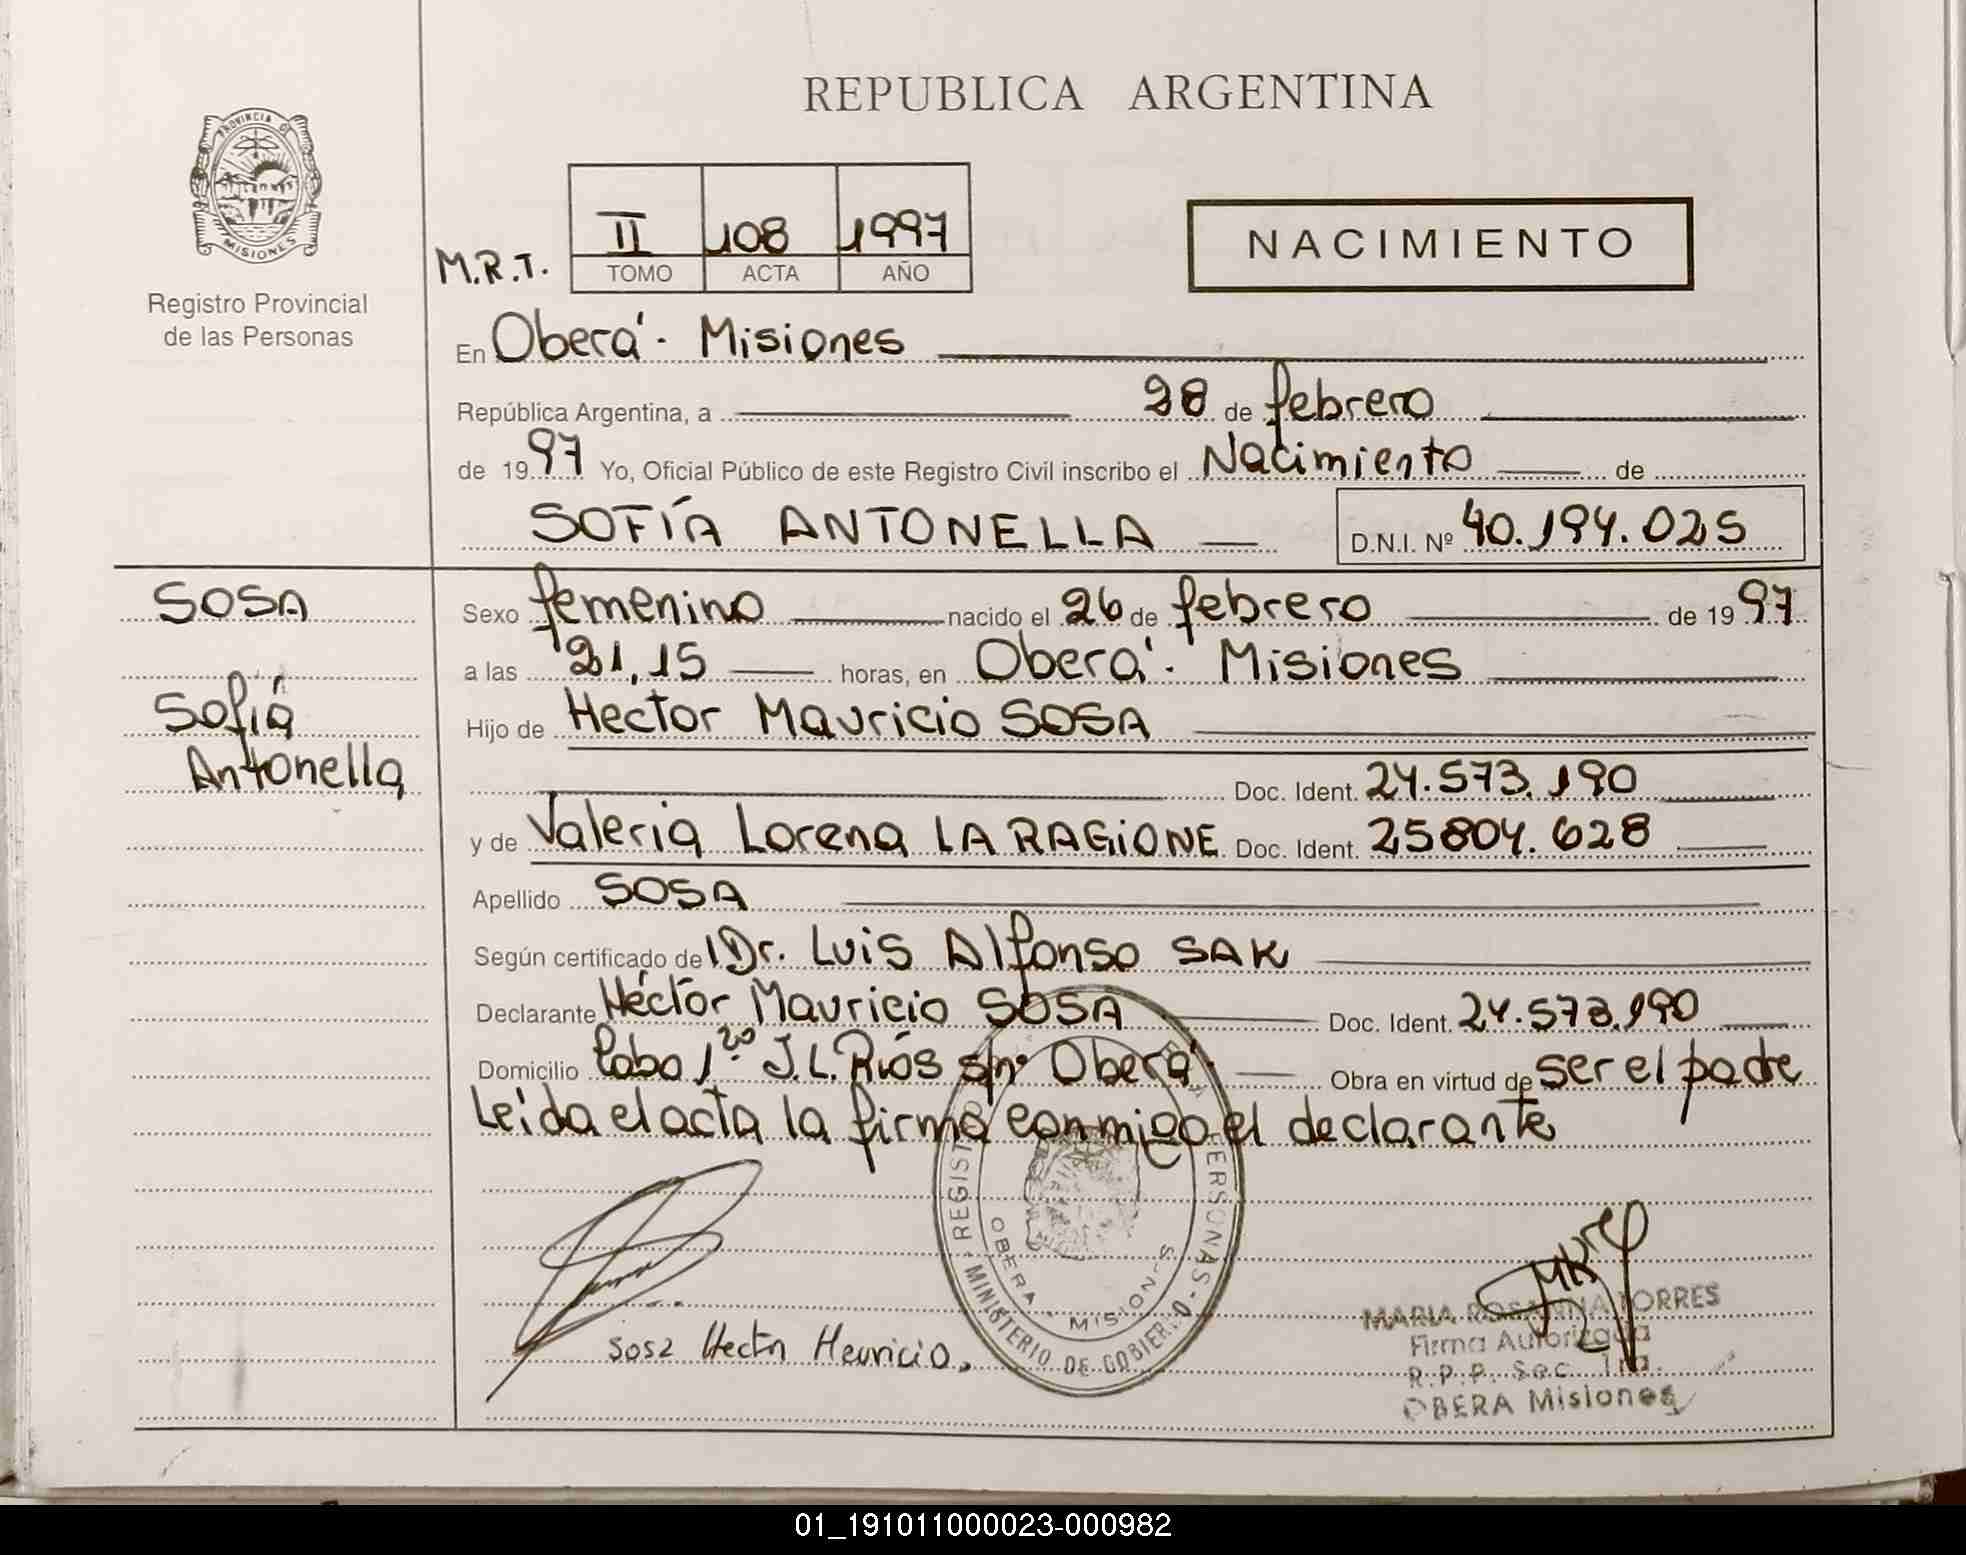 REPUBLICA ARGENTINA
PROVINCIA DE
MISIONES
Registro Provincial
de las Personas
M.R.T.
II 108 1997
TOMO ACTA AÑO
NACIMIENTO
En Oberá - Misiones
República Argentina, a 28 de febrero
de 19 97 Yo, Oficial Público de este Registro Civil inscribo el Nacimiento de
SOFÍA ANTONELLA D.N.I. Nº 40.194.025
SOSA
Sofiá
Antonella
Sexo femenino nacido el 26 de febrero de 19 97
a las 21,15 horas, en Oberá - Misiones
Hijo de Hector Mauricio SOSA
Doc. Ident. 24.573.190
y de Valeria Lorena LA RAGIONE Doc. Ident. 25804.628
Apellido SOSA
Según certificado de Dr. Luis Alfonso SAK
Declarante Héctor Mauricio SOSA Doc. Ident. 24.573.190
Domicilio Cabo 1ro J.L. Ríos s/nº Oberá - Obra en virtud de ser el padre
Leida el acta la firma conmigo el declarante
REGISTRO PERSONAS - MINISTERIO DE GOBIERNO
OBERA - MISIONES
Sosa Hector Mauricio.
MARIA ROSANNA TORRES
Firma Autorizada
R.P.P. Sec. 1ra.
OBERA Misiones
01_191011000023-000982